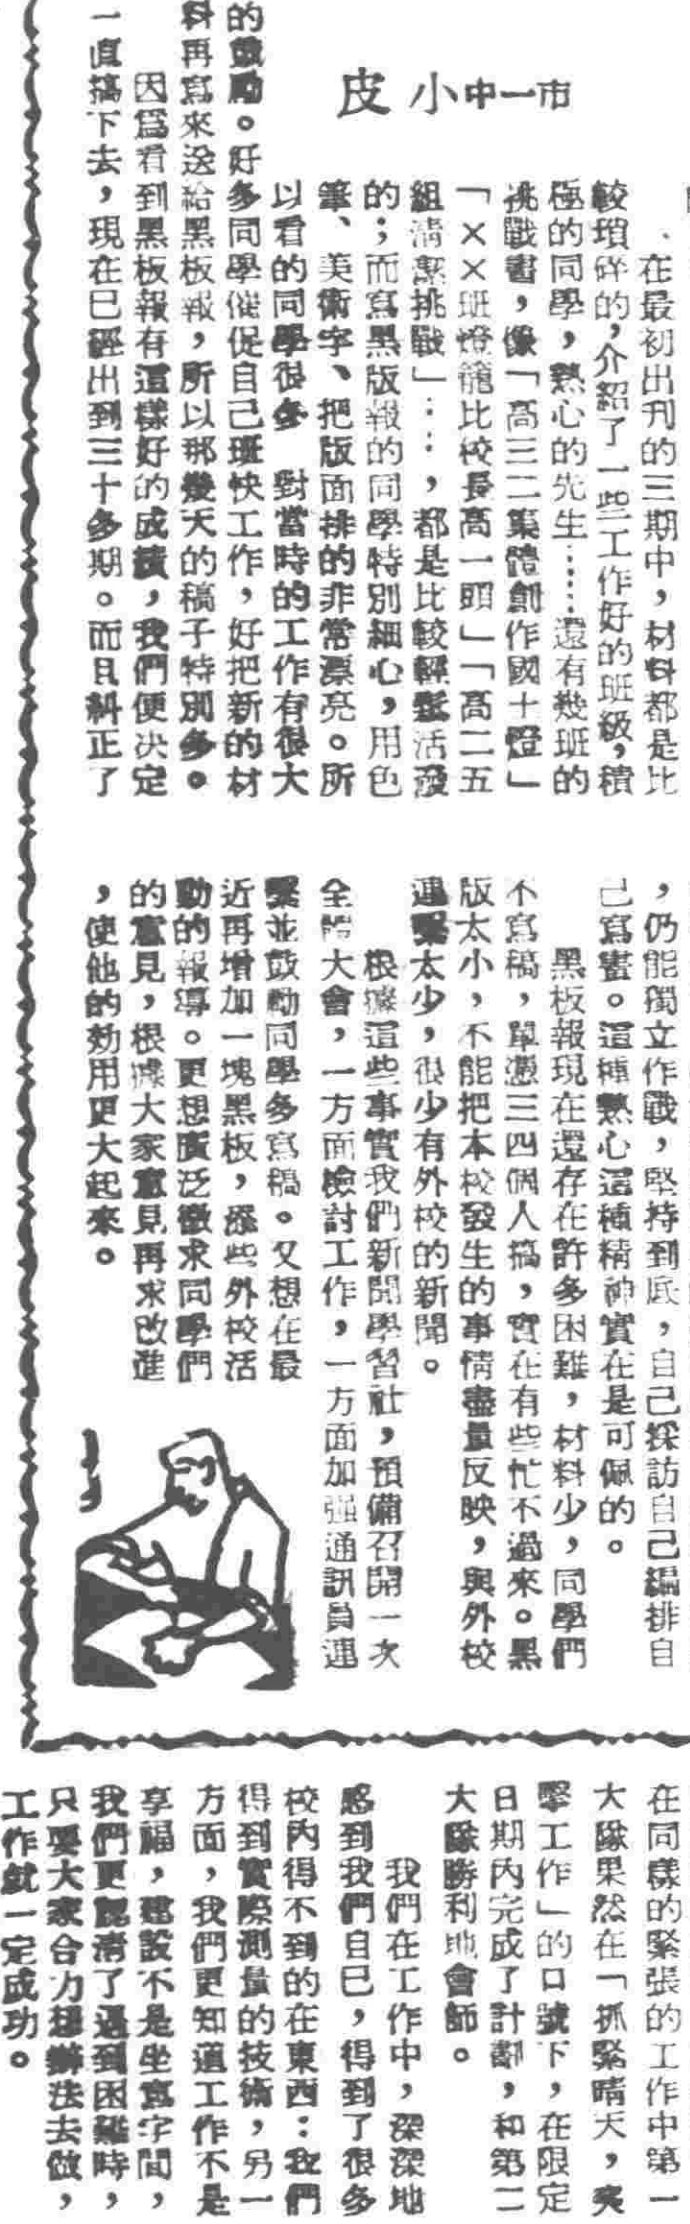 市一中小皮
、在最初出刊的三期中，材料都是比
較瑣碎的，介紹了一些工作好的班級，積
極的同學，熱心的先生……還有幾班的
挑戰書，像「高三二集體創作國十燈」
「××班燈籠比校長高一頭」「高二五
組清潔挑戰」……，都是比較輕鬆活潑
的；而寫黑版報的同學特別細心，用色
筆、美術字、把版面排的非常漂亮。所
以看的同學很多 對當時的工作有很大
的鼓勵。好多同學催促自己班快工作，好把新的材
料再寫來送給黑板報，所以那幾天的稿子特別多。
因爲看到黑板報有這樣好的成績，我們便決定
一直搞下去，現在已經出到三十多期。而且糾正了
，仍能獨立作戰，堅持到底，自己採訪自己編排自
己寫畫。這種熱心這種精神實在是可佩的。
黑板報現在還存在許多困難，材料少，同學們
不寫稿，單憑三四個人搞，實在有些忙不過來。黑
版太小，不能把本校發生的事情盡量反映，與外校
連繫太少，很少有外校的新聞。
根據這些事實我們新聞學習社，預備召開一次
全體大會，一方面檢討工作，一方面加强通訊員連
繫並鼓動同學多寫稿。又想在最
近再增加一塊黑板，添些外校活
動的報導。更想廣泛徵求同學們
的意見，根據大家意見再求改進
，使他的効用更大起來。
在同樣的緊張的工作中第一
大隊果然在「抓緊晴天，突
擊工作」的口號下，在限定
日期內完成了計劃，和第二
大隊勝利地會師。
我們在工作中，深深地
感到我們自已，得到了很多
校內得不到的在東西：我們
得到實際測量的技術，另一
方面，我們更知道工作不是
享福，建設不是坐寫字間，
我們更認清了遇到困難時，
只要大家合力想辦法去做，
工作就一定成功。